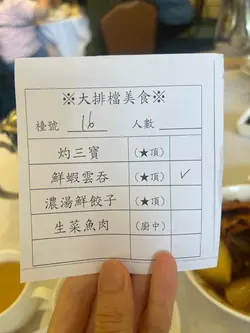 ※大排檔美食※
檯號 16 人數
灼三寶 (★頂)
鮮蝦雲吞 (★頂) ✓
濃湯鮮餃子 (★頂)
生菜魚肉 (廚中)